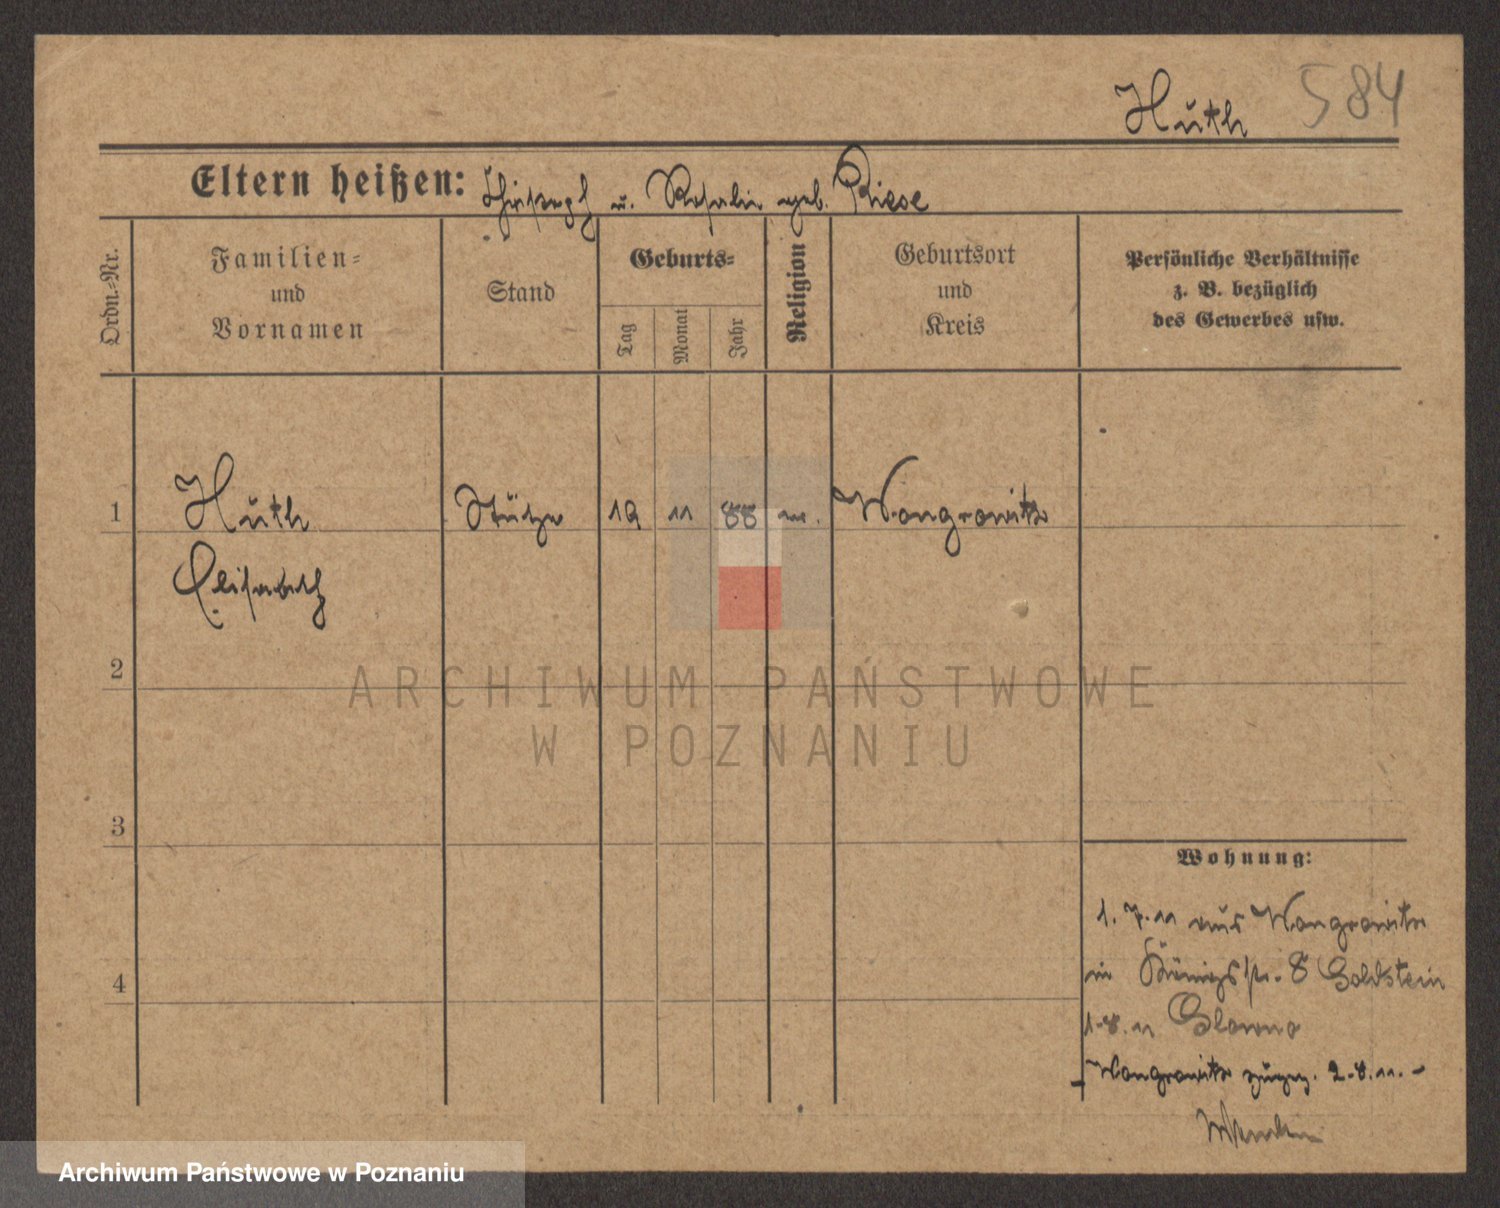 Huth 584
Eltern heißen: Christoph u. Rosalie geb. Riese
Ordn.-Nr.
Familien-
und
Vornamen
Stand
Geburts-
Tag
Monat
Jahr
Religion
Geburtsort
und
Kreis
Persönliche Verhältnisse
z. B. bezüglich
des Gewerbes usw.
1 Huth Stütze 19 11 88 ev. Wongrowitz
Elisabeth
2
ARCHIWUM PAŃSTWOWE
W POZNANIU
3
4
Wohnung:
1.7.11 aus Wongrowitz
in Königsstr. 8 Goldstein
1.8.11 Glowno
Wongrowitz 2.8.11.
Archiwum Państwowe w Poznaniu